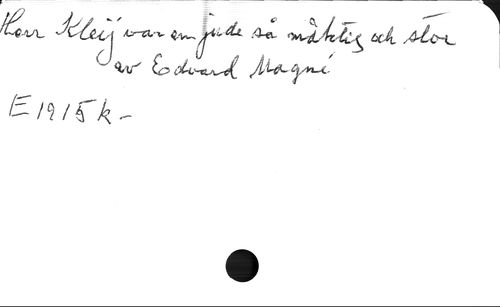 Herr Kleij var en jude så mäktig och stor
av Edvard Magné
E 1915 k-